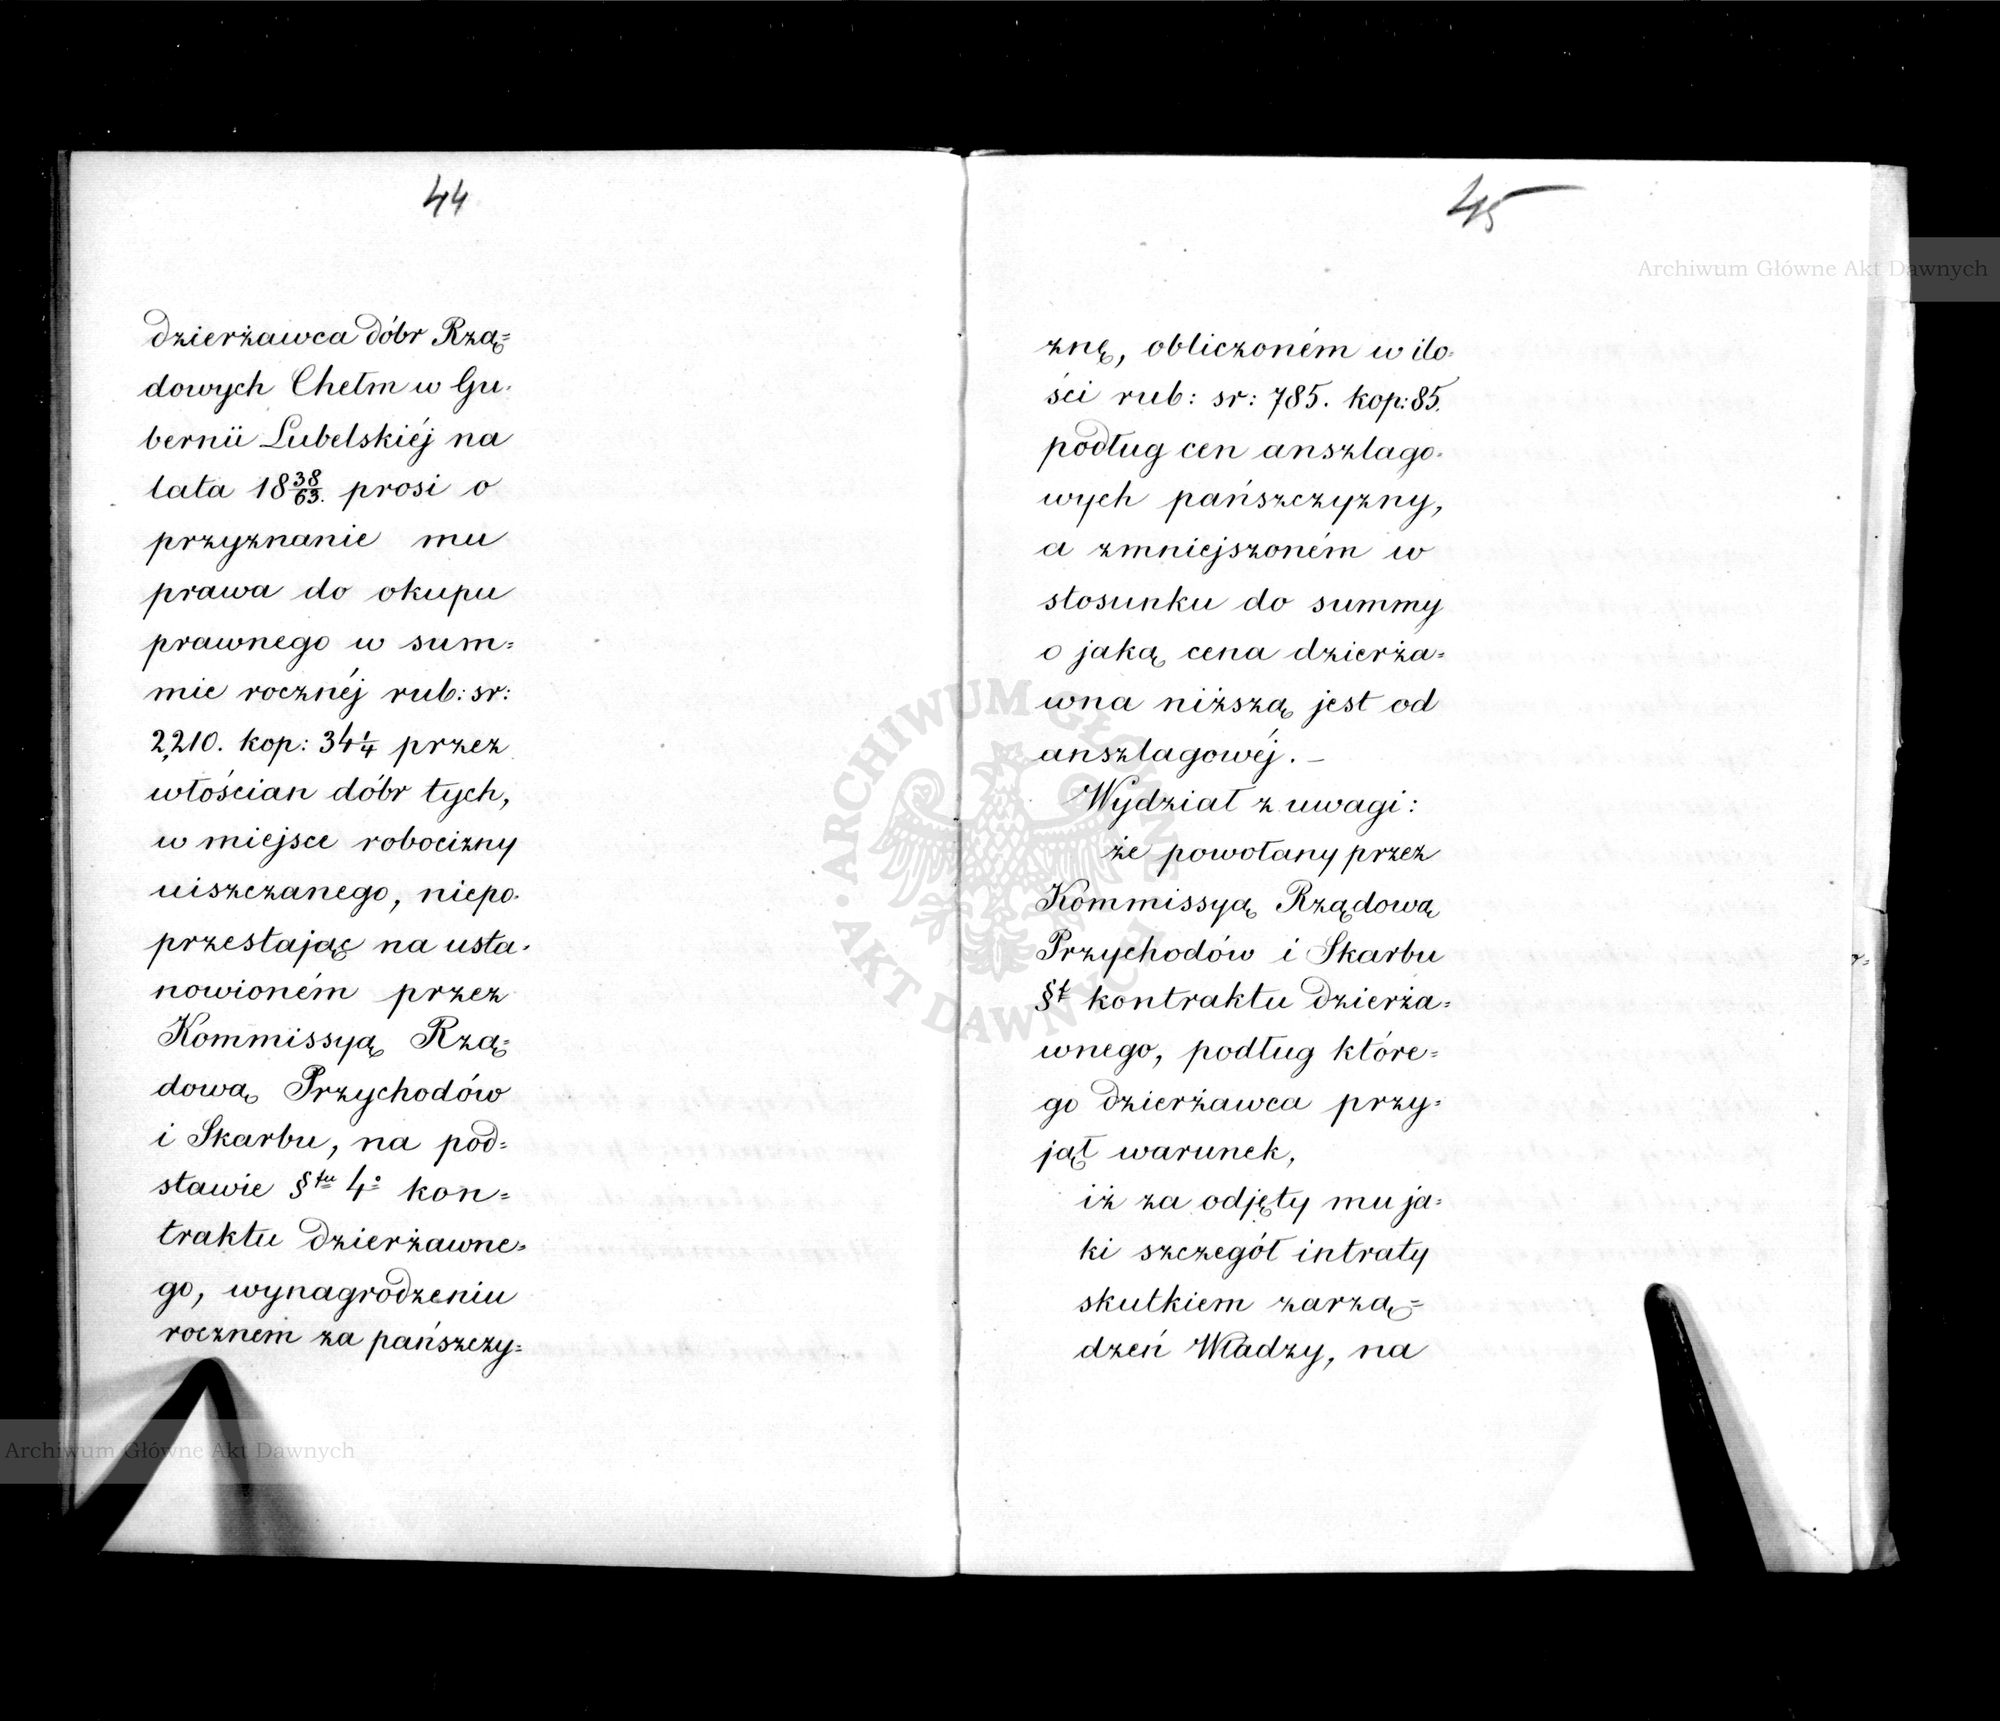 44
dzierżawca dóbr Rzą=
dowych Chełm w Gu-
bernii Lubelskiéj na
lata 18 38/63. prosi o
przyznanie mu
prawa do okupu
prawnego w sum=
mie rocznéj rub: sr:
2,210. kop: 34 1/4 przez
włościan dóbr tych,
w miejsce robocizny
uiszczanego, niepo-
przestając na usta-
nowioném przez
Kommissyą Rzą=
dową Przychodów
i Skarbu, na pod=
stawie §tu 4o kon=
traktu dzierżawne=
go, wynagrodzeniu
rocznem za pańszczy=
45
znę, obliczoném w ilo-
ści rub: sr: 785. kop: 85.
podług cen anszlago-
wych pańszczyzny,
a zmniejszoném w
stosunku do summy
o jaką cena dzierża=
wna niższą jest od
anszlagowéj. –
Wydział z uwagi:
że powołany przez
Kommissyą Rządową
Przychodów i Skarbu
§t kontraktu dzierża=
wnego, podług które=
go dzierżawca przy=
jął warunek,
iż za odjęty mu ja=
ki szczegół intraty
skutkiem zarzą=
dzeń Władzy, na
Archiwum Główne Akt Dawnych
ARCHIWUM GŁÓWNE AKT DAWNYCH
Archiwum Główne Akt Dawnych